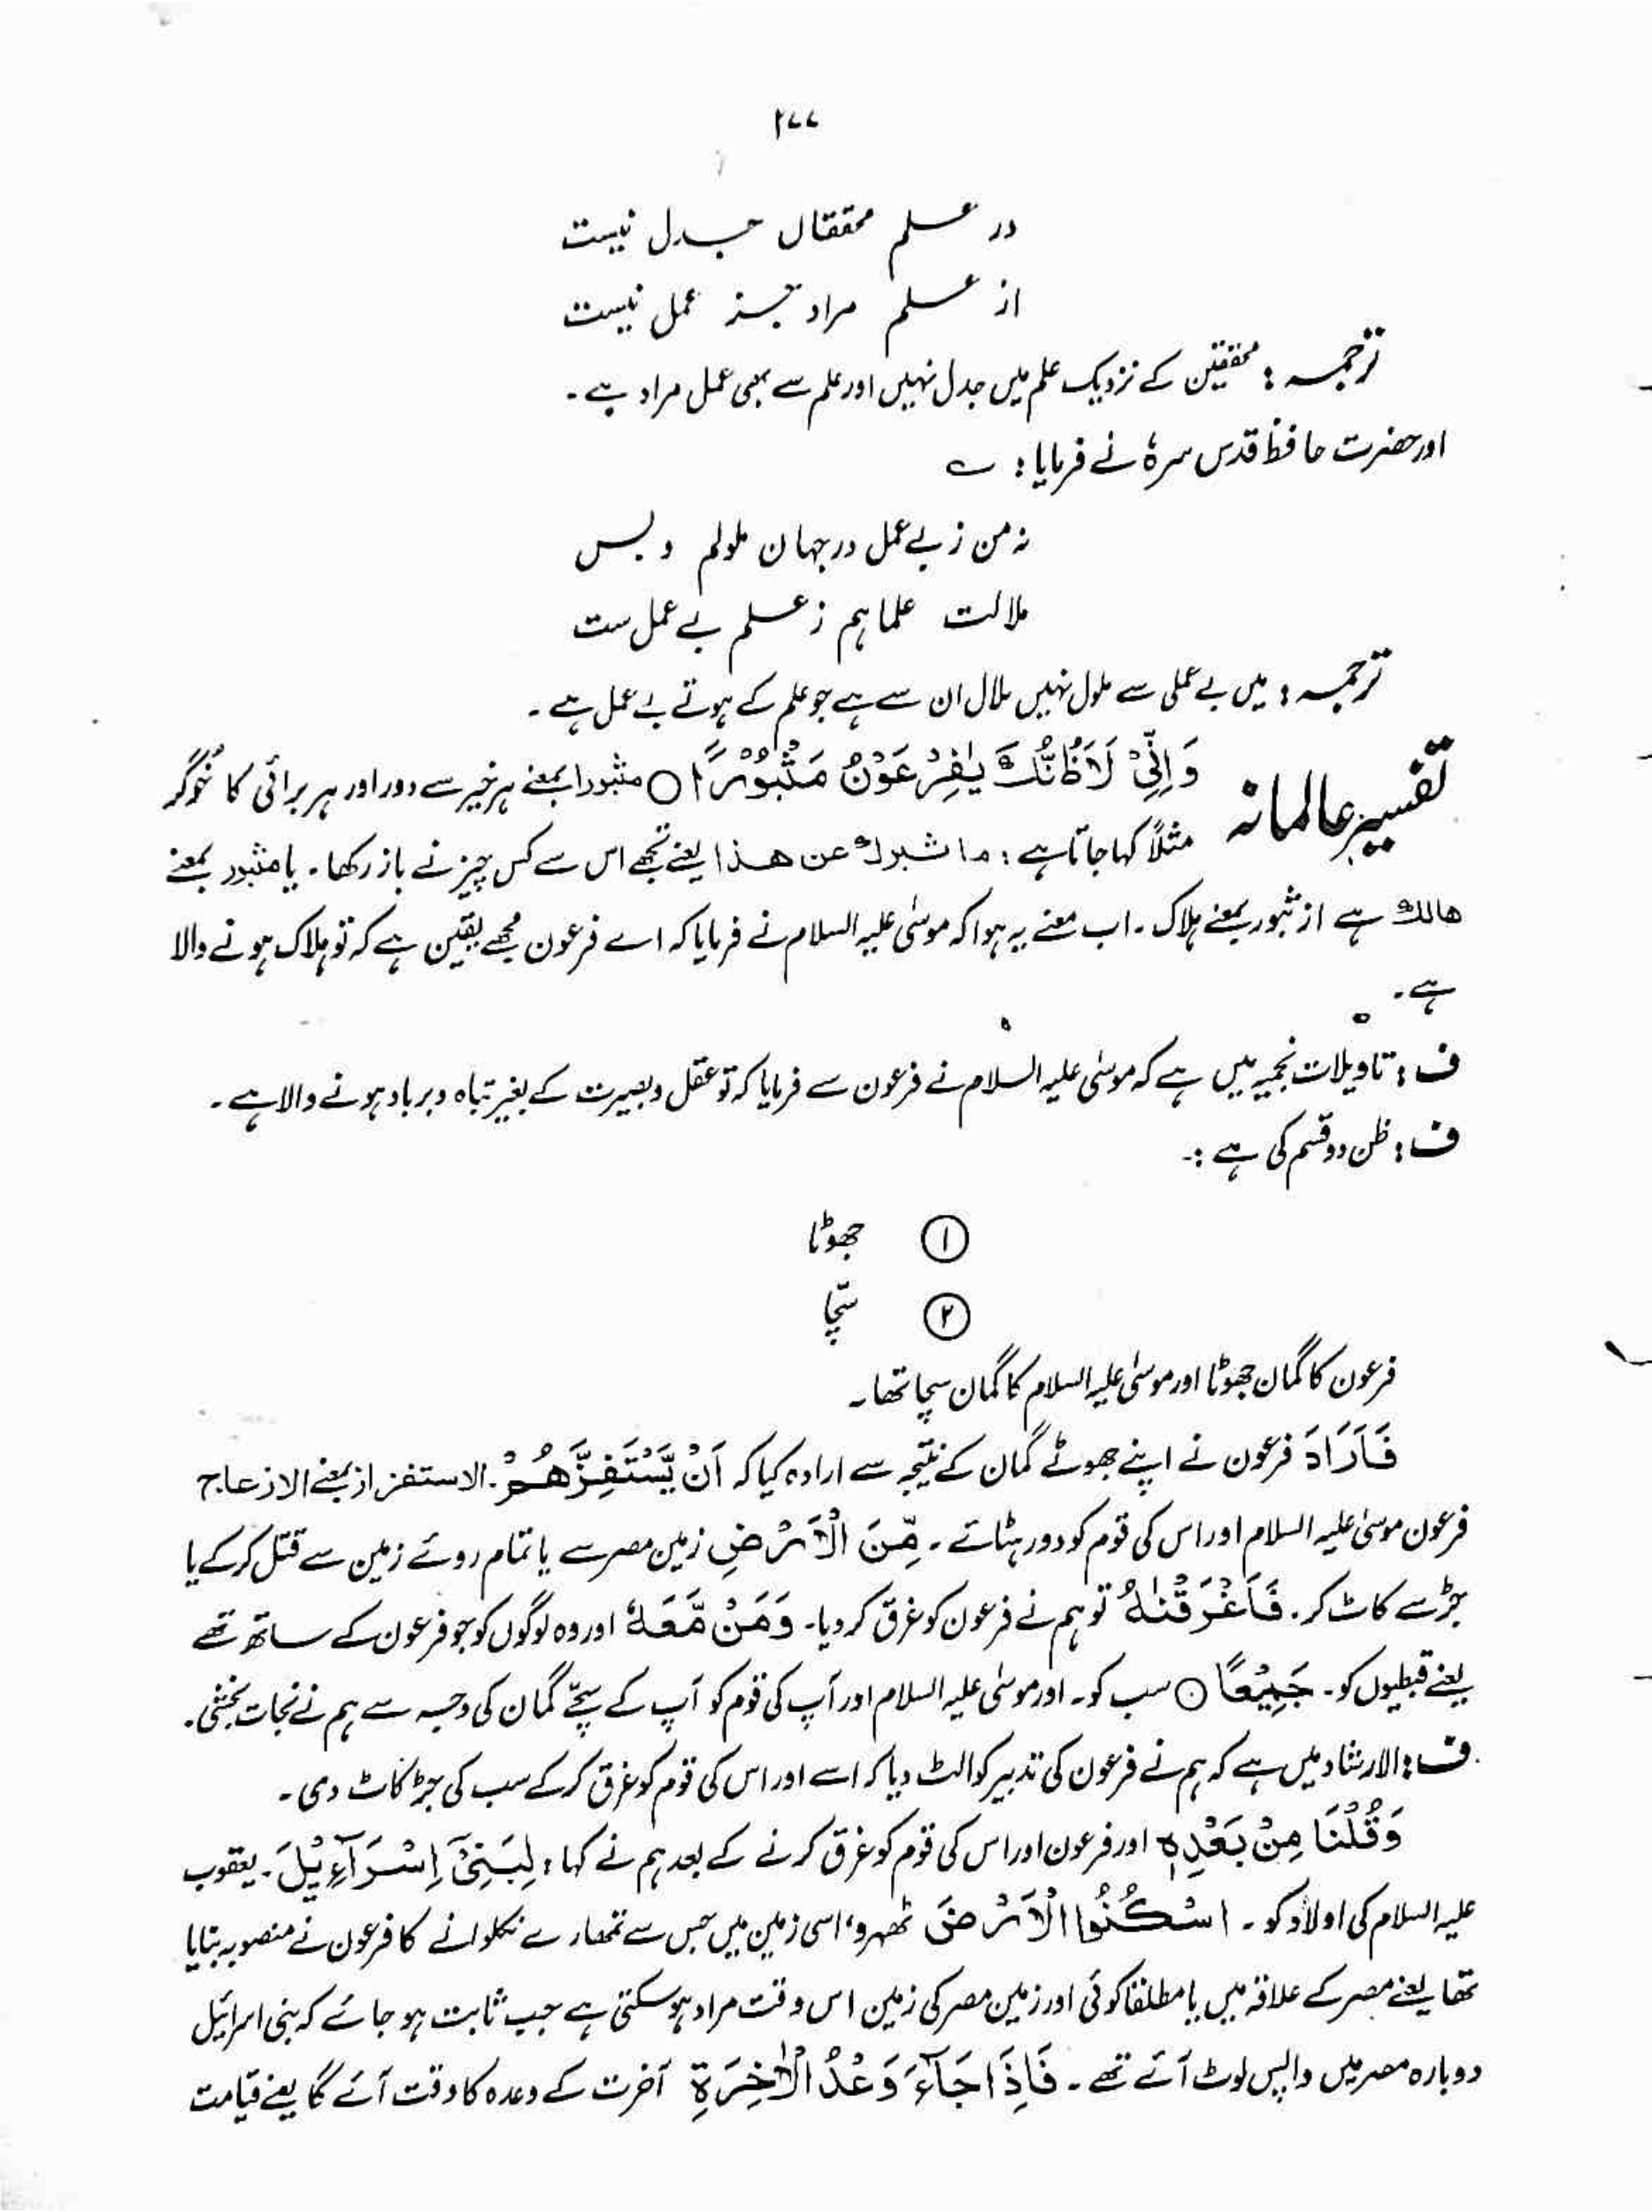 ۲۷۷
در علم محققاں جدل نیست
از علم مراد جز عمل نیست
ترجمہ : محققین کے نزدیک علم میں جدل نہیں اور علم سے بھی عمل مراد ہے ۔
اور حضرت حافظ قدس سرہٗ نے فرمایا : ؎
نہ من ز بے عمل در جہان ملولم و بس
ملالت علما ہم ز علم بے عمل ست
ترجمہ : میں بے عملی سے ملول نہیں ملال ان سے ہے جو علم کے ہوتے بے عمل ہے ۔
تفسیر عالمانہ وَ اِنِّیْ لَاَظُنُّكَ یٰفِرْعَوْنُ مَثْبُوْرًا ○ مثبورا بمعنے ہر خیر سے دور اور ہر برائی کا خُوگر
مثلاً کہا جاتا ہے : ما ثبرك عن هذا یعنے تجھے اس سے کس چیز نے باز رکھا ۔ یا مثبور بمعنے
هالك ہے از ثبور بمعنے ہلاک ۔ اب معنے یہ ہوا کہ موسٰی علیہ السلام نے فرمایا کہ اے فرعون مجھے یقین ہے کہ تو ہلاک ہونے والا
ہے ۔
ف : تاویلات نجمیہ میں ہے کہ موسٰی علیہ السلام نے فرعون سے فرمایا کہ تو عقل و بصیرت کے بغیر تباہ و برباد ہونے والا ہے ۔
ف : ظن دو قسم کی ہے :-
① جھوٹا
② سچّا
فرعون کا گمان جھوٹا اور موسٰی علیہ السلام کا گمان سچا تھا ۔
فَاَرَادَ فرعون نے اپنے جھوٹے گمان کے نتیجہ سے ارادہ کیا کہ اَنْ یَّسْتَفِزَّهُمْ ۔ الاستفزاز بمعنے الازعاج
فرعون موسٰی علیہ السلام اور اس کی قوم کو دور ہٹاتے ۔ مِّنَ الْاَرْضِ زمین مصر سے یا تمام روئے زمین سے قتل کر کے یا
جڑ سے کاٹ کر ۔ فَاَغْرَقْنٰهُ تو ہم نے فرعون کو غرق کر دیا ۔ وَمَنْ مَّعَهٗ اور وہ لوگوں کو جو فرعون کے ساتھ تھے
یعنے قبطیوں کو ۔ جَمِیْعًا ○ سب کو ۔ اور موسٰی علیہ السلام اور آپ کی قوم کو آپ کے سچّے گمان کی وجہ سے ہم نے نجات بخشی ۔
ف : الارشاد میں ہے کہ ہم نے فرعون کی تدبیر کو الٹ دیا کہ اسے اور اس کی قوم کو غرق کر کے سب کی جڑ کاٹ دی ۔
وَقُلْنَا مِنْ بَعْدِهٖ اور فرعون اور اس کی قوم کو غرق کرنے کے بعد ہم نے کہا : لِبَنِیْۤ اِسْرَآءِیْلَ ۔ یعقوب
علیہ السلام کی اولاد کو ۔ اسْكُنُوا الْاَرْضَ ٹھہرو، اسی زمین میں جس سے تمھارے نکلوانے کا فرعون نے منصوبہ بنایا
تھا یعنے مصر کے علاقہ میں یا مطلقا کوئی اور زمین مصر کی زمین اس وقت مراد ہو سکتی ہے جب ثابت ہو جائے کہ بنی اسرائیل
دوبارہ مصر میں واپس لوٹ آئے تھے ۔ فَاِذَا جَآءَ وَعْدُ الْاٰخِرَةِ آخرت کے وعدہ کا وقت آئے گا یعنے قیامت